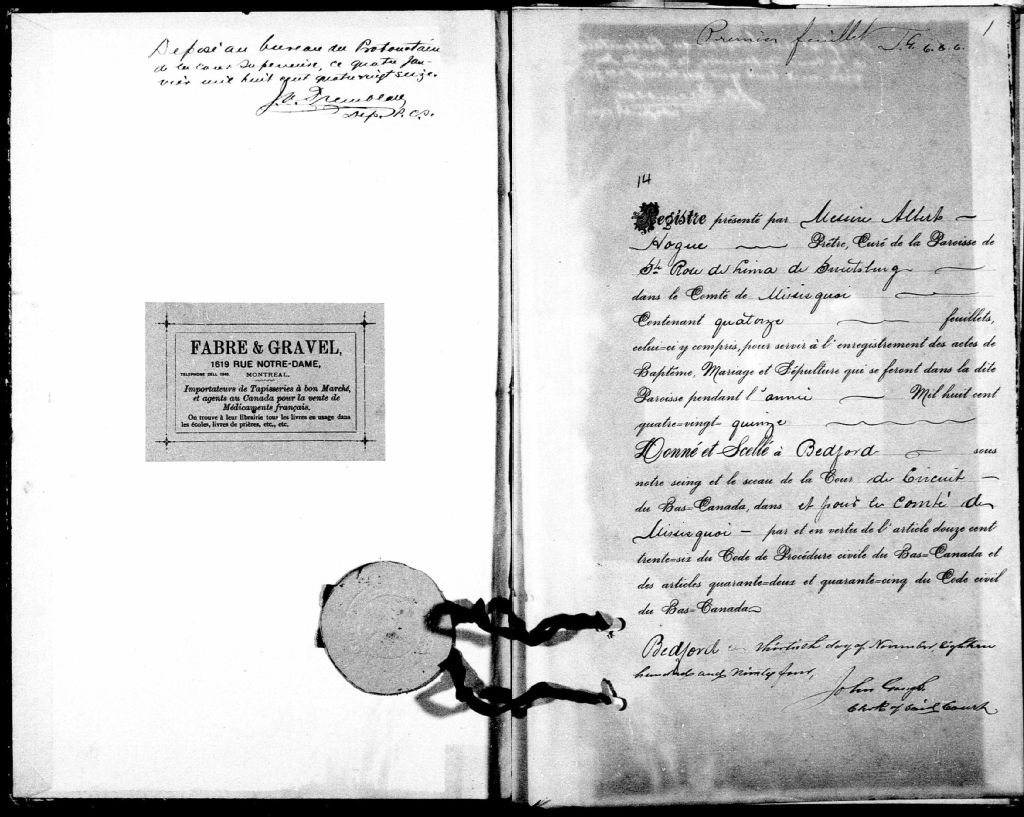 Déposé au bureau du Protonotaire
de la Cour Supérieure, ce quatre jan-
vier mil huit cent quatrevingt seize.
J. A. Trembleau
Dep. P. C. S.
FABRE & GRAVEL,
1619 RUE NOTRE-DAME,
TELEPHONE BELL
MONTREAL.
Importateurs de Tapisseries à bon Marché,
et agents au Canada pour la vente de
Médicaments français.
On trouve à leur librairie tous les livres en usage dans
les écoles, livres de prières, etc., etc.
Premier feuillet J. G. C. C. C. 1
14
Registre présenté par Messire Albert
Hogue Prêtre, Curé de la Paroisse de
Ste Rose de Lima de Sweetsburg
dans le Comté de Missisquoi
Contenant quatorze feuillets,
celui-ci y compris, pour servir à l'enregistrement des actes de
Baptême, Mariage et Sépulture qui se feront dans la dite
Paroisse pendant l'année Mil huit cent
quatre-vingt-quinze
Donné et Scellé à Bedford sous
notre seing et le sceau de la Cour de Circuit
du Bas=Canada, dans et pour le comté de
Missisquoi par et en vertu de l'article douze cent
trente=six du Code de Procédure civile du Bas=Canada et
des articles quarante=deux et quarante=cinq du Code civil
du Bas=Canada
Bedford thirtieth day of November, Eighteen
hundred and ninety four,
John Gough
Clerk of said Court